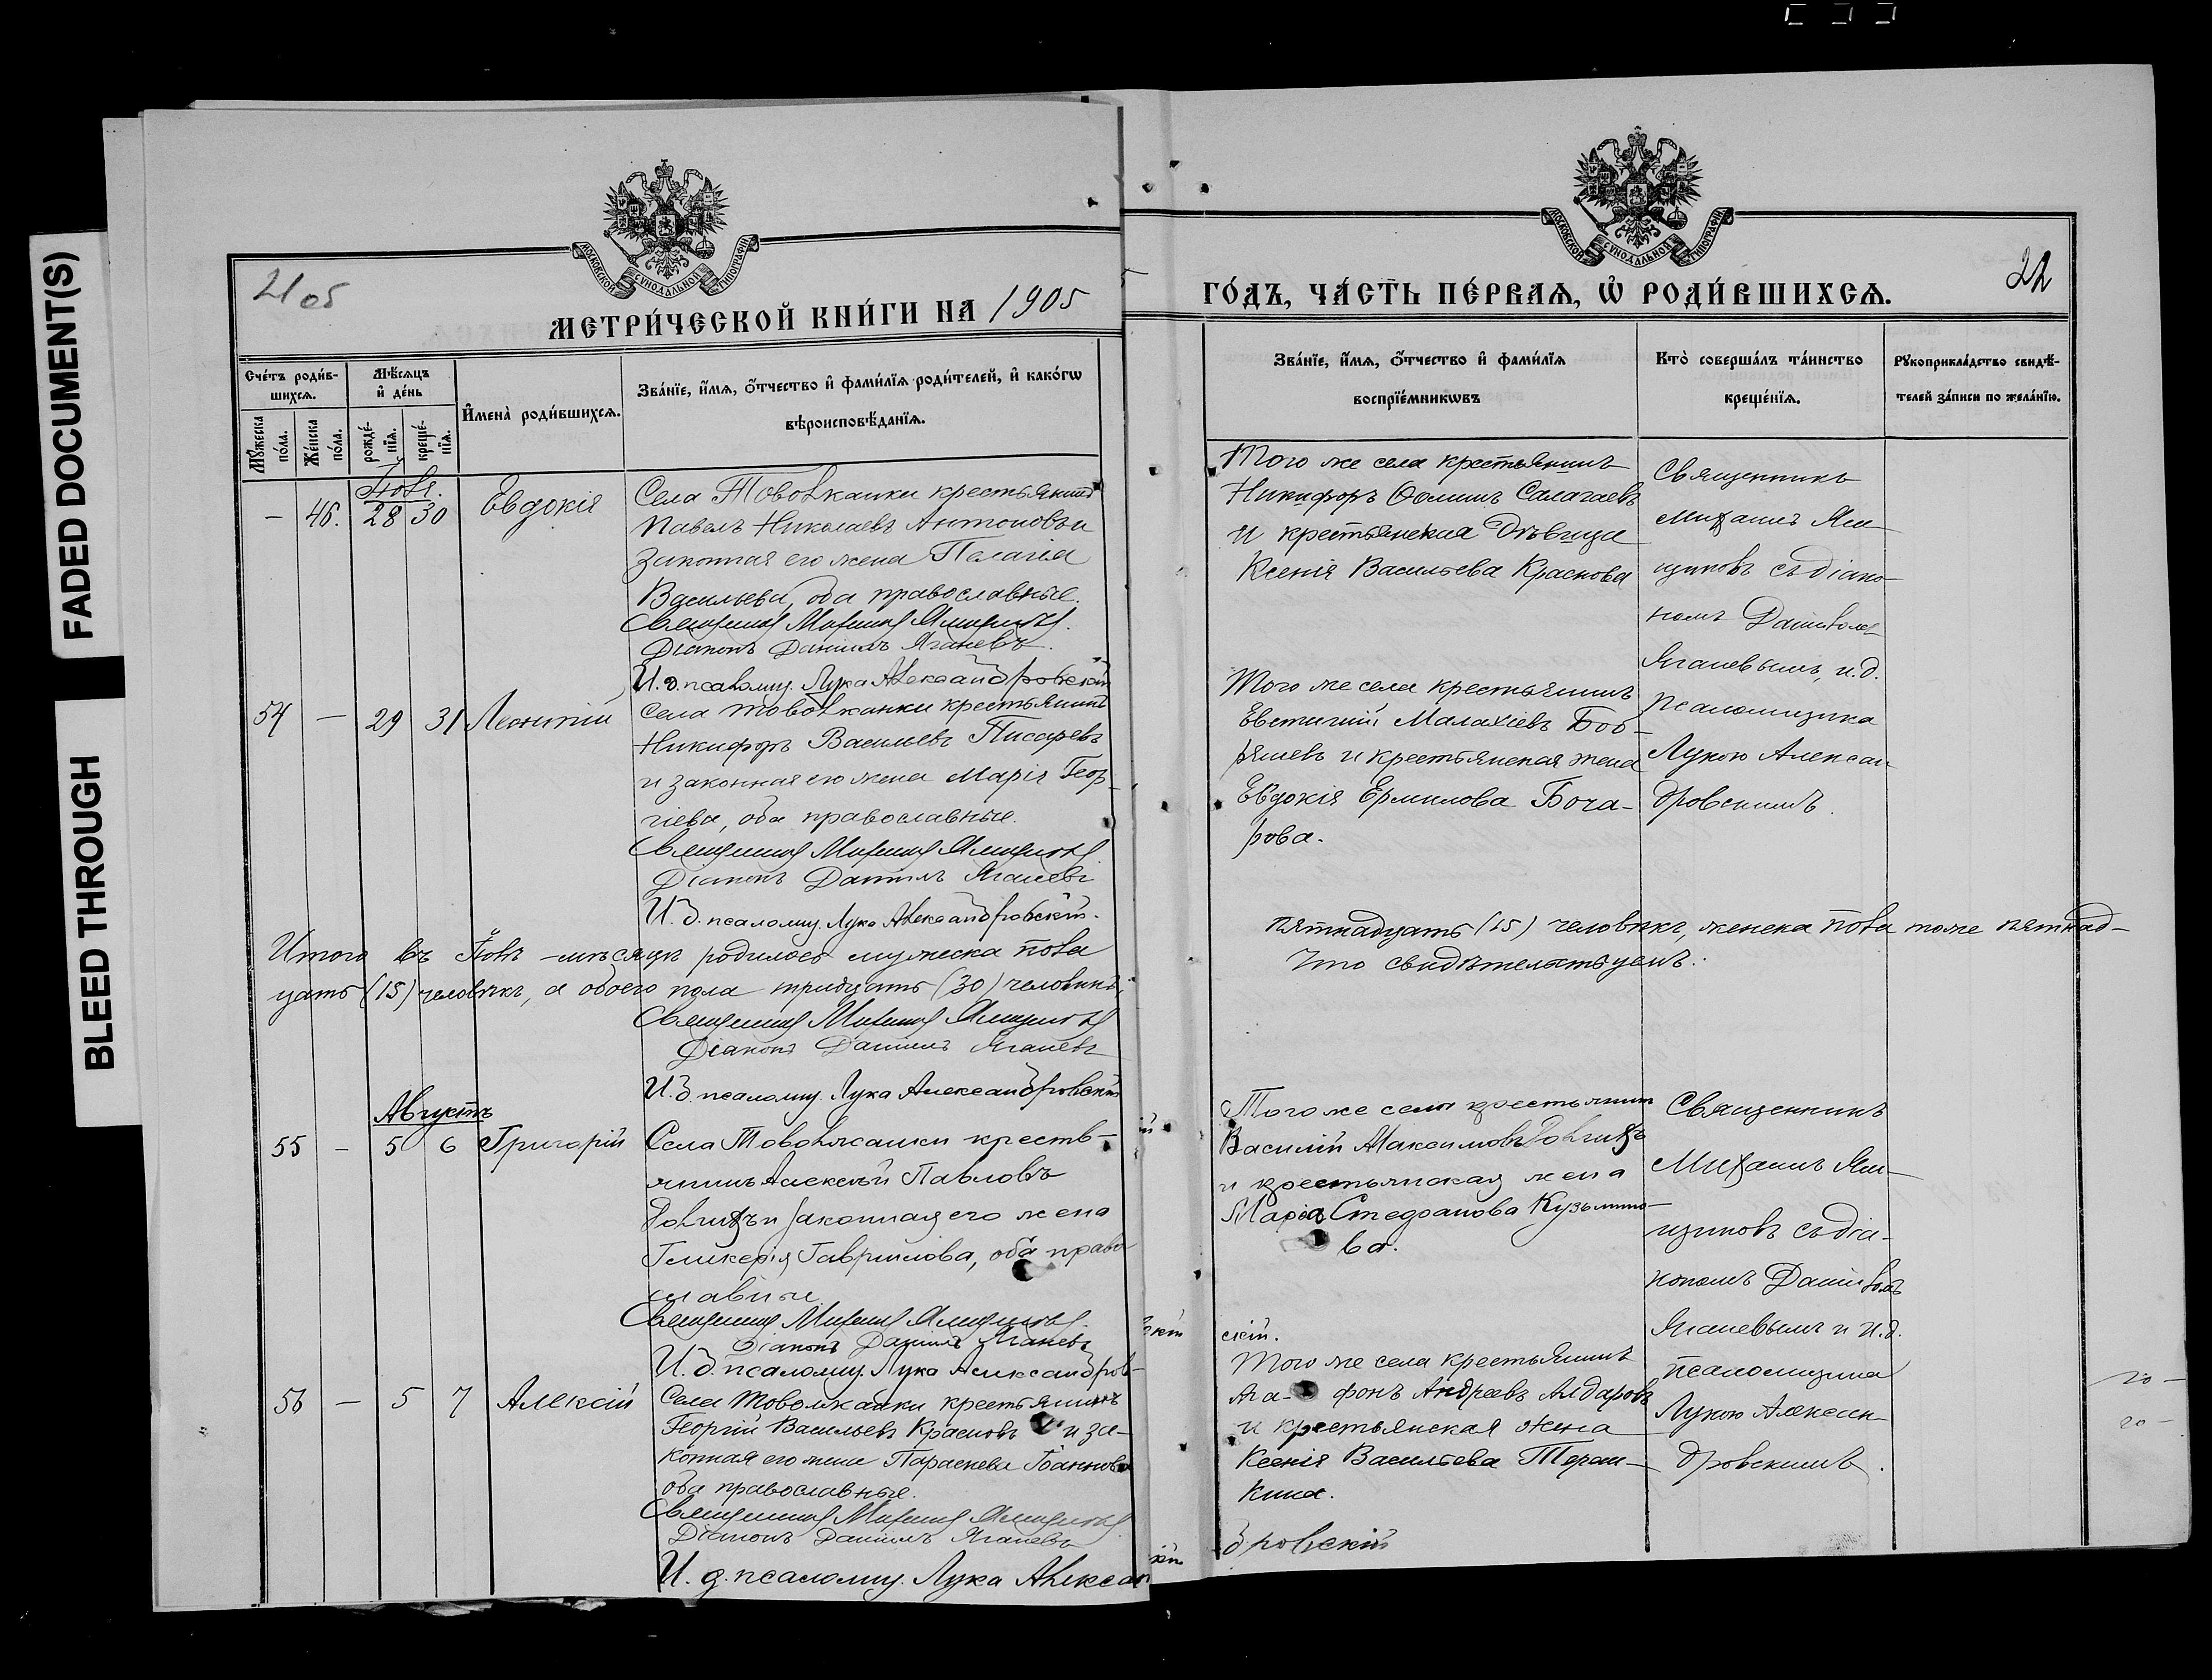 FADED DOCUMENT(S)
BLEED THROUGH
МОСКОВСКОЙ СѴНОДАЛЬНОЙ ТИПОГРАФІИ
МЕТРИ́ЧЕСКОЙ КНИ́ГИ НА 1905
Сче́тъ роди́в-
шихсѧ.
Мꙋ́жеска
по́ла.
Же́нска
по́ла.
Мѣ́сѧцъ
и҆ де́нь
рожде́-
нїѧ.
креще́-
нїѧ.
И҆мена̀ роди́вшихсѧ.
Зва́нїе, и҆́мѧ, ѻ҆́тчество и҆ фами́лїѧ роди́телей, и҆ како́гѡ
вѣроисповѣ́данїѧ.
Іюль.
— 46. 28 30 Евдокія
Села Товолжанки крестьянинъ
Павелъ Николаевъ Антоновъ и
законная его жена Пелагія
Васильева, оба православные.
Священникъ Михаилъ Ямщиковъ.
Діаконъ Даніилъ Яганевъ.
И. д. псаломщ. Лука Александровскій
54 — 29 31 Леонтій
Села Товолжанки крестьянинъ
Никифоръ Васильевъ Писаревъ
и законная его жена Марія Геор-
гіева, оба православные.
Священникъ Михаилъ Ямщиковъ
Діаконъ Даніилъ Яганевъ
И. д. псаломщ. Лука Александровскій.
Итого въ Іюлѣ -мѣсяцѣ родилось мужеска пола
цать (15) человѣкъ, а обоего пола тридцать (30) человѣкъ,
Священникъ Михаилъ Ямщиковъ
Діаконъ Даніилъ Яганевъ
И. д. псаломщ. Лука Александровскій
Августъ
55 — 5 6 Григорій
Села Товолжанки кресть-
янинъ Алексѣй Павловъ
и законная его жена
Гликерія Гаврилова, оба право
славные
Священникъ Михаилъ Ямщиковъ.
Діаконъ Даніилъ Яганевъ
И. д. псаломщ. Лука Александров-
56 — 5 7 Алексій
Села Товолжанки крестьянинъ
Георгій Васильевъ Красновъ и за-
конная его жена Параскева Іоаннова
оба православные.
Священникъ Михаилъ Ямщиковъ
Діаконъ Даніилъ Яганевъ
И. д. псаломщ. Лука Алексан
МОСКОВСКОЙ СѴНОДАЛЬНОЙ ТИПОГРАФІИ
ГО́ДЪ, ЧА́СТЬ ПЕ́РВАѦ, Ѡ҆ РОДИ́ВШИХСѦ.
22
Зва́нїе, и҆́мѧ, ѻ҆́тчество и҆ фами́лїѧ
воспрїе́мникѡвъ
Кто̀ соверша́лъ та́инство
креще́нїѧ.
Рꙋкоприкла́дство свидѣ́-
телей за́писи по жела́нїю.
Того же села крестьянинъ
Никифоръ Ѳоминъ Салагаевъ
и крестьянская дѣвица
Ксенія Васильева Краснова
Священникъ
Михаилъ Ям-
щиковъ съ діако-
номъ Даніиломъ
Яганевымъ, и. д.
псаломщика
Лукою Алексан-
дровскимъ.
Того же села крестьянинъ
Евстигній Малахіевъ Боб-
рышевъ и крестьянская жена
Евдокія Ермилова Боча-
рова.
пятнадцать (15) человѣкъ, женска пола тоже пятнад-
Что свидѣтельствуемъ.
Того же села крестьянинъ
Василій Максимовъ
и крестьянская жена
Марія Стефанова Кузьмино-
ва.
Священникъ
Михаилъ Ям-
щиковъ съ діа-
кономъ Даніиломъ
Яганевымъ и и. д.
псаломщика
Лукою Алексан-
дровскимъ.
скій.
Того же села крестьянинъ
Ага- фонъ Андреевъ Алдаровъ
и крестьянская жена
Ксенія Васильева
кина.
дровскій